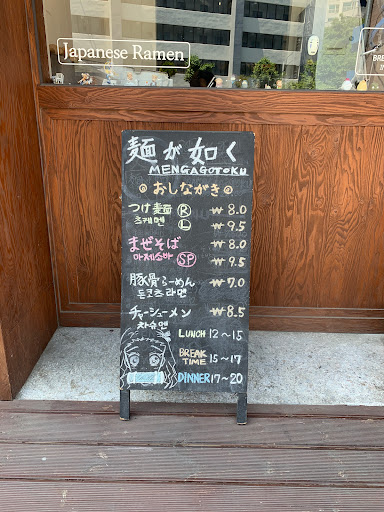 Japanese Ramen
BRE
麺が如く
MENGAGOTOKU
おしながき
つけ麺 Ⓡ ₩ 8.0
츠케멘 Ⓛ ₩ 9.5
まぜそば ₩ 8.0
마제소바 SP ₩ 9.5
豚骨らーめん ₩ 7.0
돈코츠라멘
チャーシューメン ₩ 8.5
차슈멘
LUNCH 12~15
BREAK TIME 15~17
DINNER 17~20